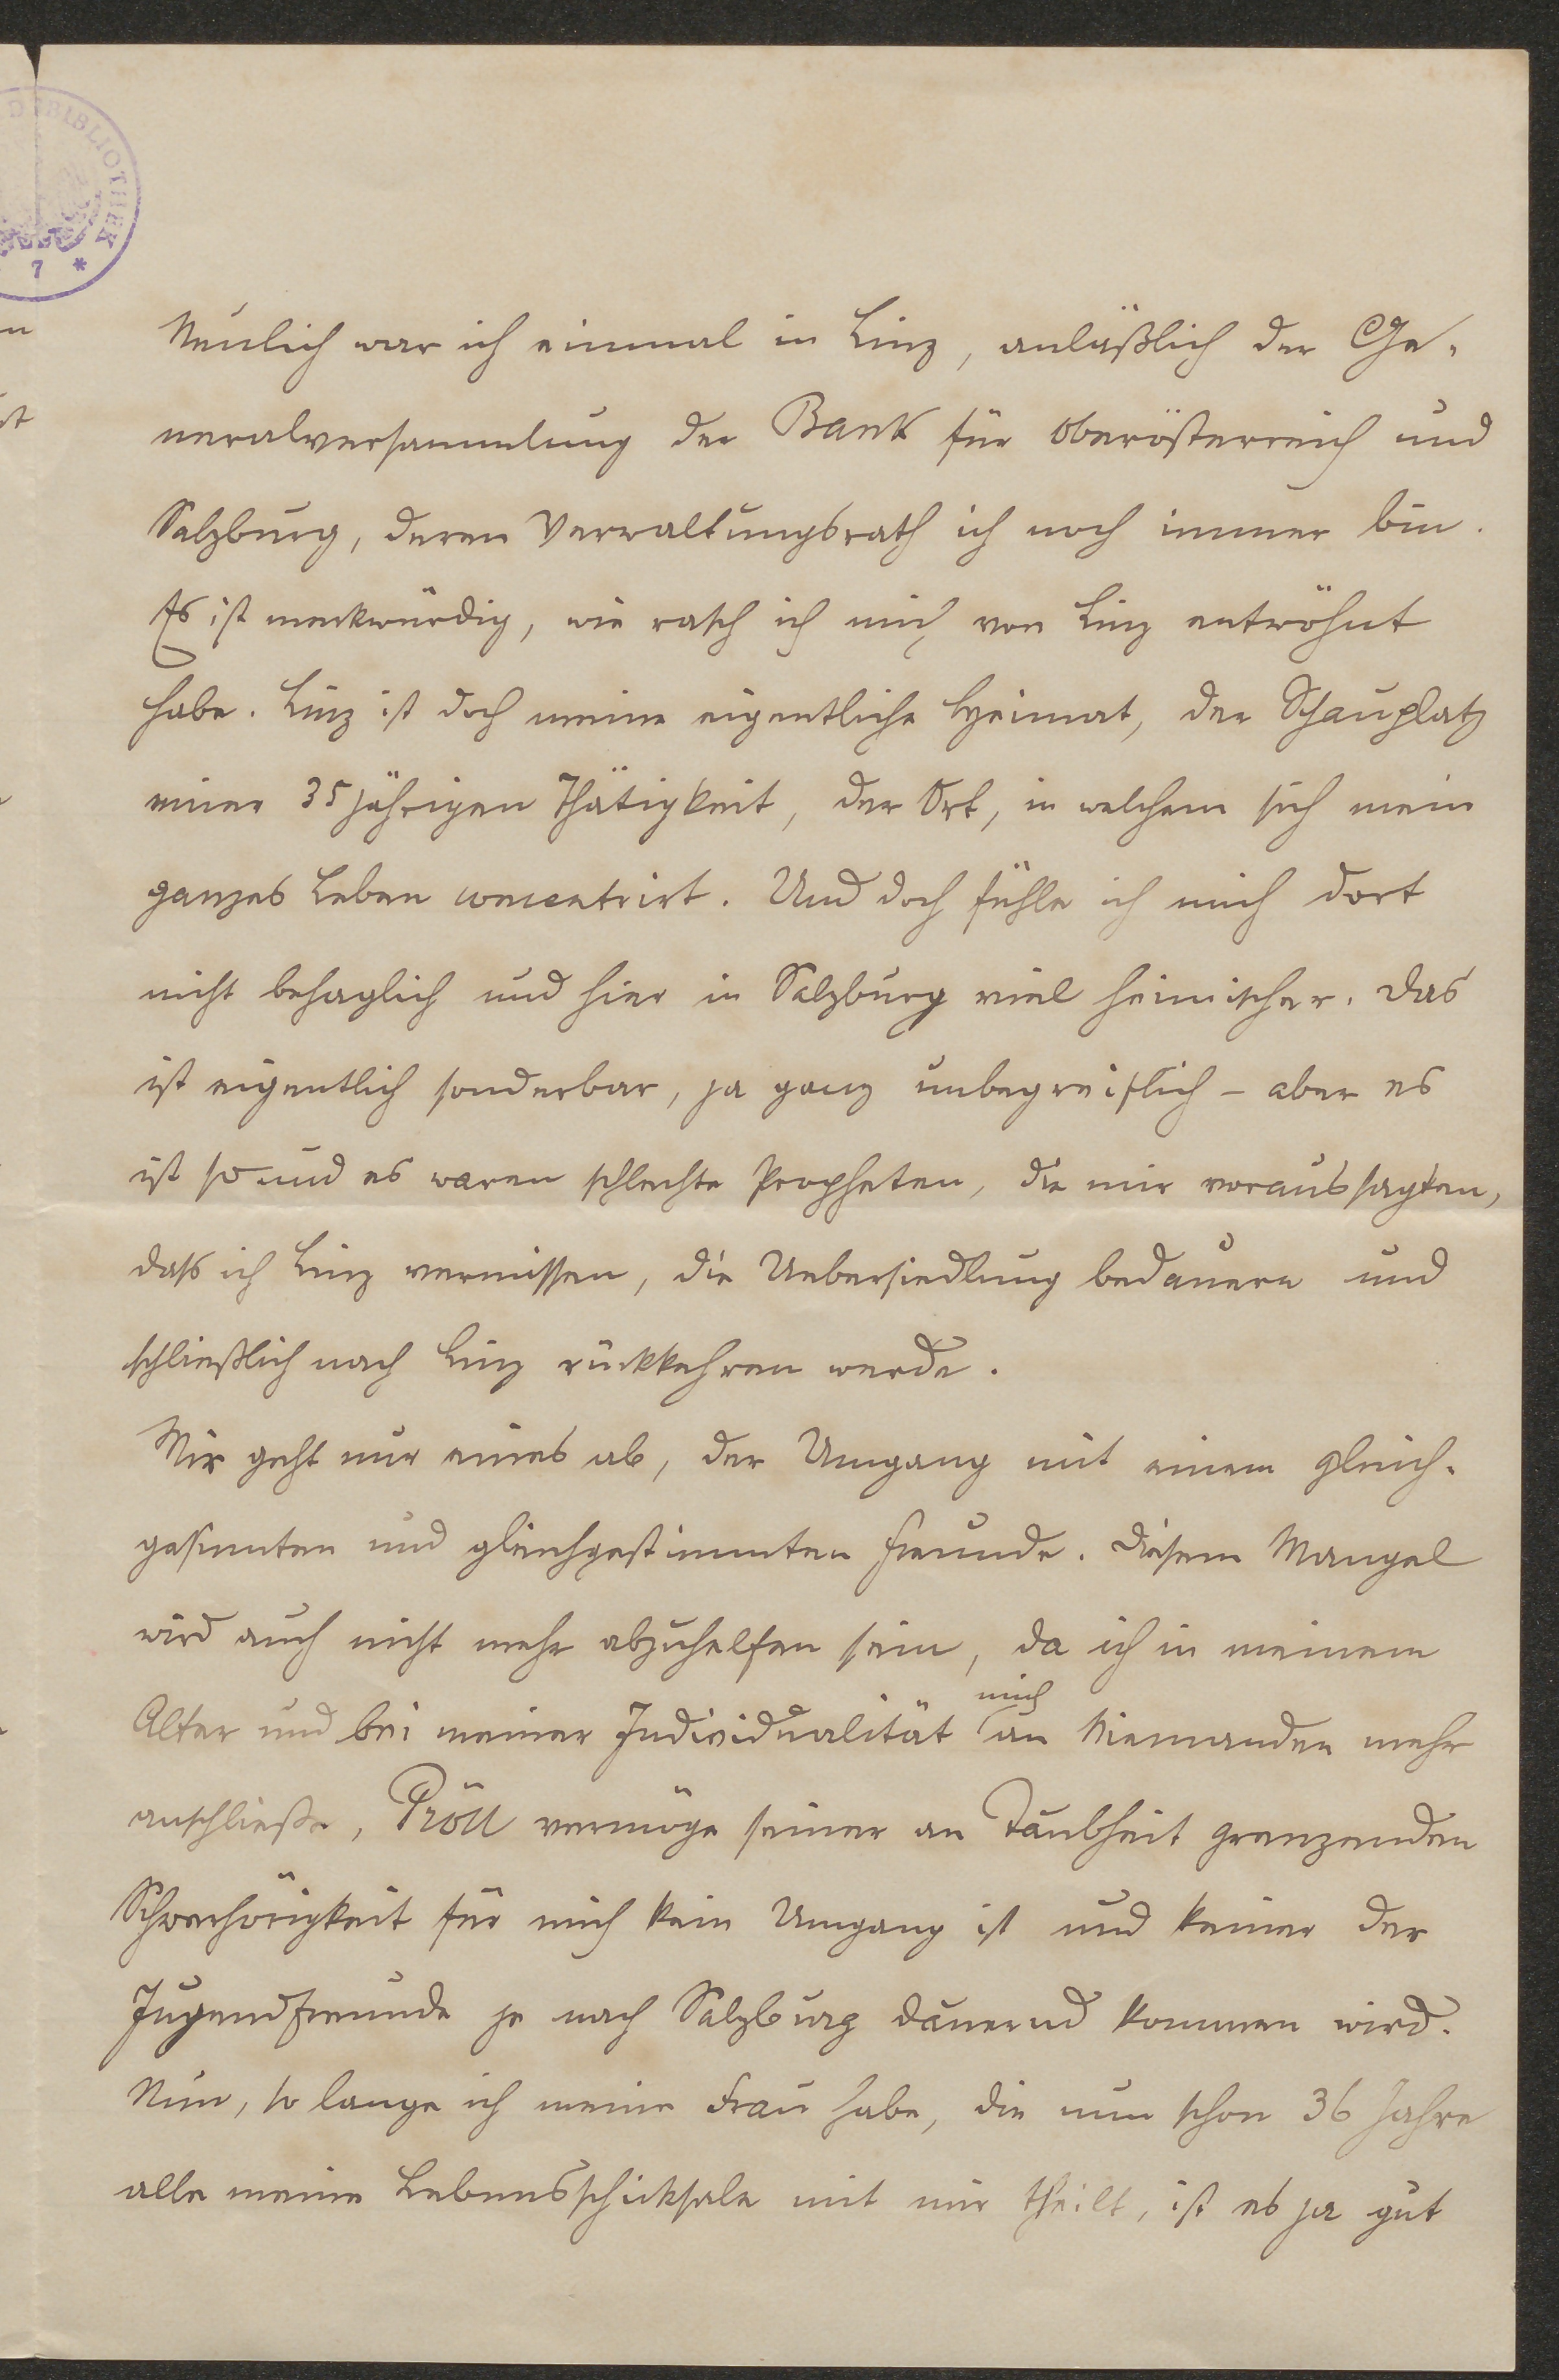 BIBLIOTHEK
7 *
Neulich war ich einmal in Linz, anläßlich der Ge-
neralversammlung der Bank für Oberösterreich und
Salzburg, deren Verwaltungsrath ich noch immer bin.
Es ist merkwürdig, wie rasch ich mich von Linz entwöhnt
habe. Linz ist doch meine eigentliche Heimat, der Schauplatz
einer 35jährigen Thätigkeit, der Ort, in welchem sich mein
ganzes Leben concentrirt. Und doch fühle ich mich dort
nicht behaglich und hier in Salzburg viel heimischer. Das
ist eigentlich sonderbar, ja ganz unbegreiflich – aber es
ist so und es waren schlechte Propheten, die mir voraussagten,
dass ich Linz vermissen, die Uebersiedlung bedauern und
schließlich nach Linz rückkehren werde.
Mir geht nur eines ab, der Umgang mit einem gleich-
gesinnten und gleichgestimmten Freunde. Diesem Mangel
wird auch nicht mehr abzuhelfen sein, da ich in meinem
Alter und bei meiner Individualität mich an Niemanden mehr
anschließe, Pröll vermöge seiner an Taubheit grenzenden
Schwerhörigkeit für mich kein Umgang ist und keiner der
Jugendfreunde je nach Salzburg dauernd kommen wird.
Nun, so lange ich meine Frau habe, die nun schon 36 Jahre
alle meine Lebensschicksale mit mir theilt, ist es ja gut